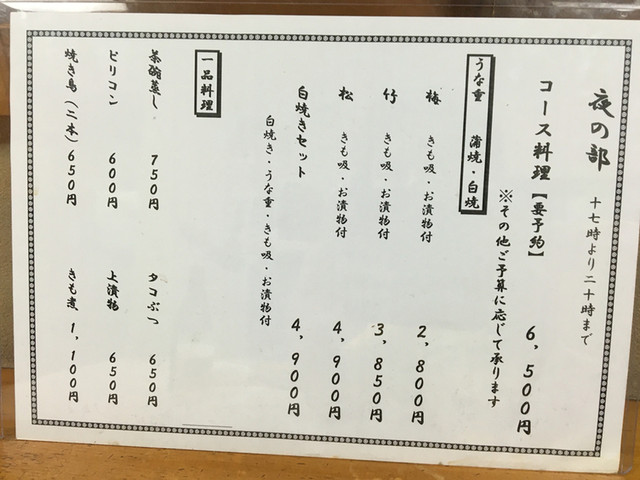 夜の部 十七時より二十時まで
コース料理【要予約】 6,500円
※その他ご予算に応じて承ります
うな重 蒲焼・白焼
梅 きも吸・お漬物付 2,800円
竹 きも吸・お漬物付 3,850円
松 きも吸・お漬物付 4,900円
白焼きセット 4,900円
白焼き・うな重・きも吸・お漬物付
一品料理
茶碗蒸し 750円
タコぶつ 650円
ピリコン 600円
上漬物 650円
焼き鳥(二本) 650円
きも煮 1,100円